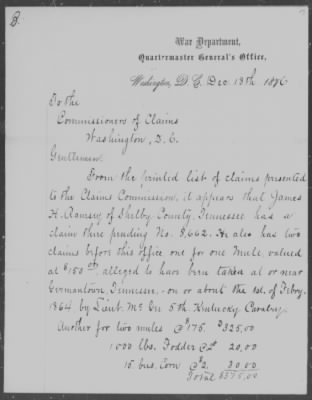 B.
War Department,
Quartermaster General's Office,
Washington, D.C. Dec 13th 1876
To the
Commissioners of Claims
Washington, D.C.
Gentlemen:
From the printed list of claims presented
to the Claims Commission, it appears that James
H. Ramsey of Shelby County, Tennessee has a
claim there pending No. 8,662. He also has two
claims before this office one for one Mule, valued
at $150 alleged to have been taken at or near
Germantown, Tennessee, on or about the 1st. of Febry.
1864 by Lieut. 5th. Kentucky Cavalry.
Another for two mules @ $175. $325.00
1000 lbs. Fodder @ 2¢ 20.00
15. bus. Corn @ $2. 30.00
Total $375.00